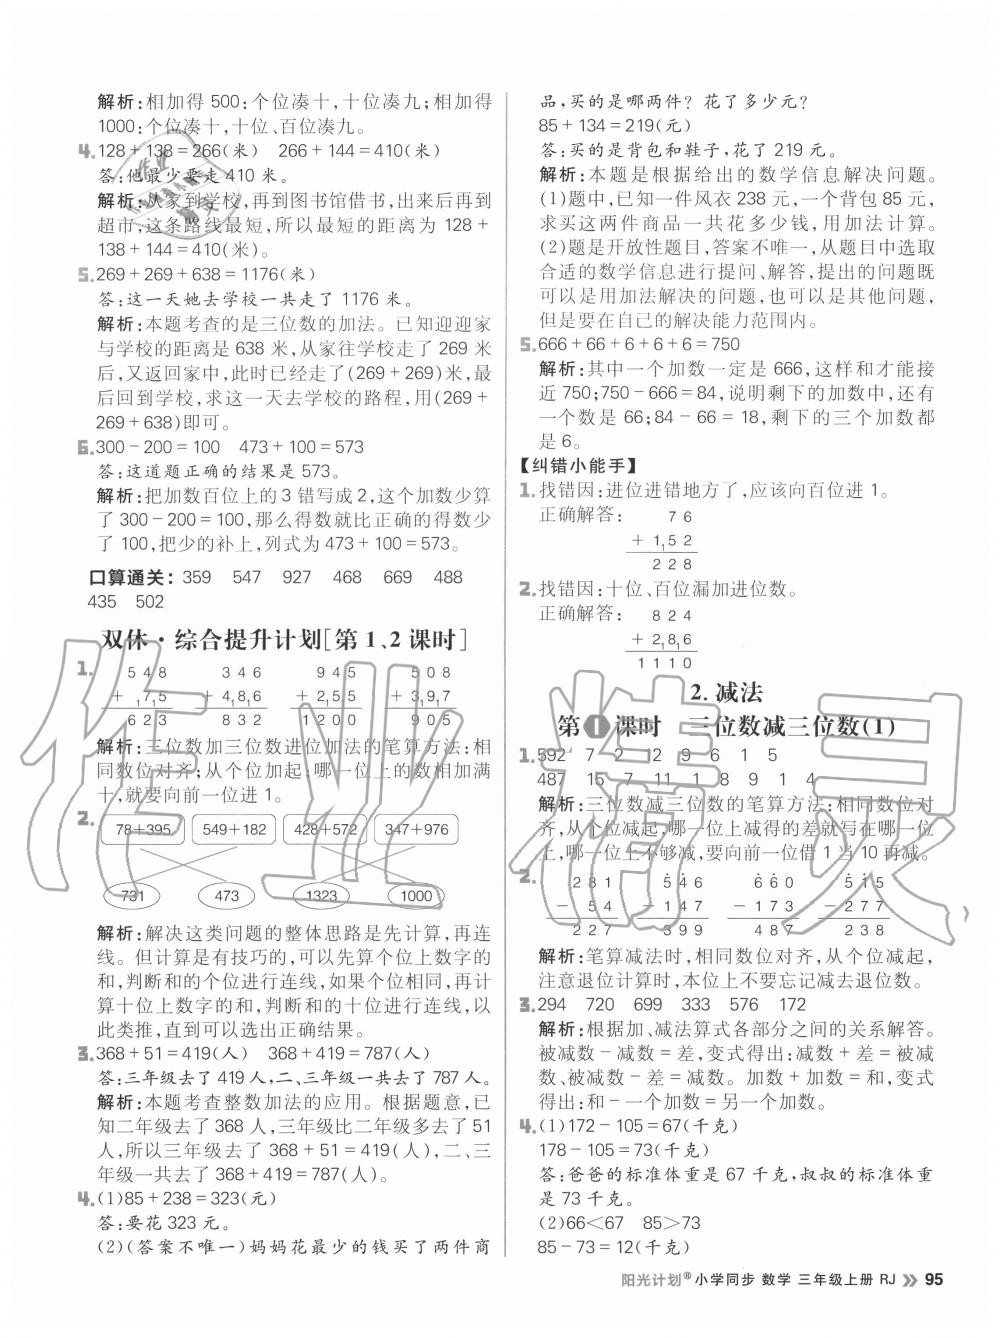 解析:相加得 500:个位凑十,十位凑九;相加得
1000:个位凑十,十位、百位凑九。
4. 128+138=266(米) 266+144=410(米)
答:他最少要走 410 米。
解析:从家到学校,再到图书馆借书,出来后再到
超市,这条路线最短,所以最短的距离为 128+
138+144=410(米)。
5. 269+269+638=1176(米)
答:这一天她去学校一共走了 1176 米。
解析:本题考查的是三位数的加法。已知迎迎家
与学校的距离是 638 米,从家往学校走了 269 米
后,又返回家中,此时已经走了(269+269)米,最
后回到学校,求这一天去学校的路程,用(269+
269+638)即可。
6. 300-200=100 473+100=573
答:这道题正确的结果是 573。
解析:把加数百位上的 3 错写成 2,这个加数少算
了 300-200=100,那么得数就比正确的得数少
了 100,把少的补上,列式为 473+100=573。
口算通关: 359 547 927 468 669 488
435 502
双休·综合提升计划[第 1、2 课时]
1. 548 346 945 508
+ 1 7 1 5 + 4 1 8 1 6 + 2 1 5 1 5 + 3 1 9 1 7
623 832 1200 905
解析:三位数加三位数进位加法的笔算方法:相
同数位对齐;从个位加起;哪一位上的数相加满
十,就要向前一位进 1。
2. 78+395 549+182 428+572 347+976
731 473 1323 1000
解析:解决这类问题的整体思路是先计算,再连
线。但计算是有技巧的,可以先算个位上数字的
和,判断和的个位进行连线,如果个位相同,再计
算十位上数字的和,判断和的十位进行连线,以
此类推,直到可以选出正确结果。
3. 368+51=419(人) 368+419=787(人)
答:三年级去了 419 人,二、三年级一共去了 787 人。
解析:本题考查整数加法的应用。根据题意,已
知二年级去了 368 人,三年级比二年级多去了 51
人,所以三年级去了 368+51=419(人),二、三
年级一共去了 368+419=787(人)。
4. (1)85+238=323(元)
答:要花 323 元。
(2)(答案不唯一)妈妈花最少的钱买了两件商
品,买的是哪两件? 花了多少元?
85+134=219(元)
答:买的是背包和鞋子,花了 219 元。
解析:本题是根据给出的数学信息解决问题。
(1)题中,已知一件风衣 238 元,一个背包 85 元,
求买这两件商品一共花多少钱,用加法计算。
(2)题是开放性题目,答案不唯一,从题目中选取
合适的数学信息进行提问、解答,提出的问题既
可以是用加法解决的问题,也可以是其他问题,
但是要在自己的解决能力范围内。
5. 666+66+6+6+6=750
解析:其中一个加数一定是 666,这样和才能接
近 750;750-666=84,说明剩下的加数中,还有
一个数是 66;84-66=18,剩下的三个加数都
是 6。
【纠错小能手】
1. 找错因:进位进错地方了,应该向百位进 1。
正确解答: 76
+ 1 1 5 2
228
2. 找错因:十位、百位漏加进位数。
正确解答: 824
+ 2 1 8 1 6
1110
2. 减法
第1课时 三位数减三位数(1)
1. 592 7 2 12 9 6 1 5
487 15 7 11 1 8 9 1 4
解析:三位数减三位数的笔算方法:相同数位对
齐,从个位减起,哪一位上减得的差就写在哪一位
上,哪一位上不够减,要向前一位借 1 当 10 再减。
2. 281 546 660 515
- 54 - 147 - 173 - 277
227 399 487 238
解析:笔算减法时,相同数位对齐,从个位减起,
注意退位计算时,本位上不要忘记减去退位数。
3. 294 720 699 333 576 172
解析:根据加、减法算式各部分之间的关系解答。
被减数-减数=差,变式得出:减数+差=被减
数、被减数-差=减数。加数+加数=和,变式
得出:和-一个加数=另一个加数。
4. (1)172-105=67(千克)
178-105=73(千克)
答:爸爸的标准体重是 67 千克,叔叔的标准体重
是 73 千克。
(2)66<67 85>73
85-73=12(千克)
阳光计划® 小学同步 数学 三年级上册 RJ 95
作业精灵